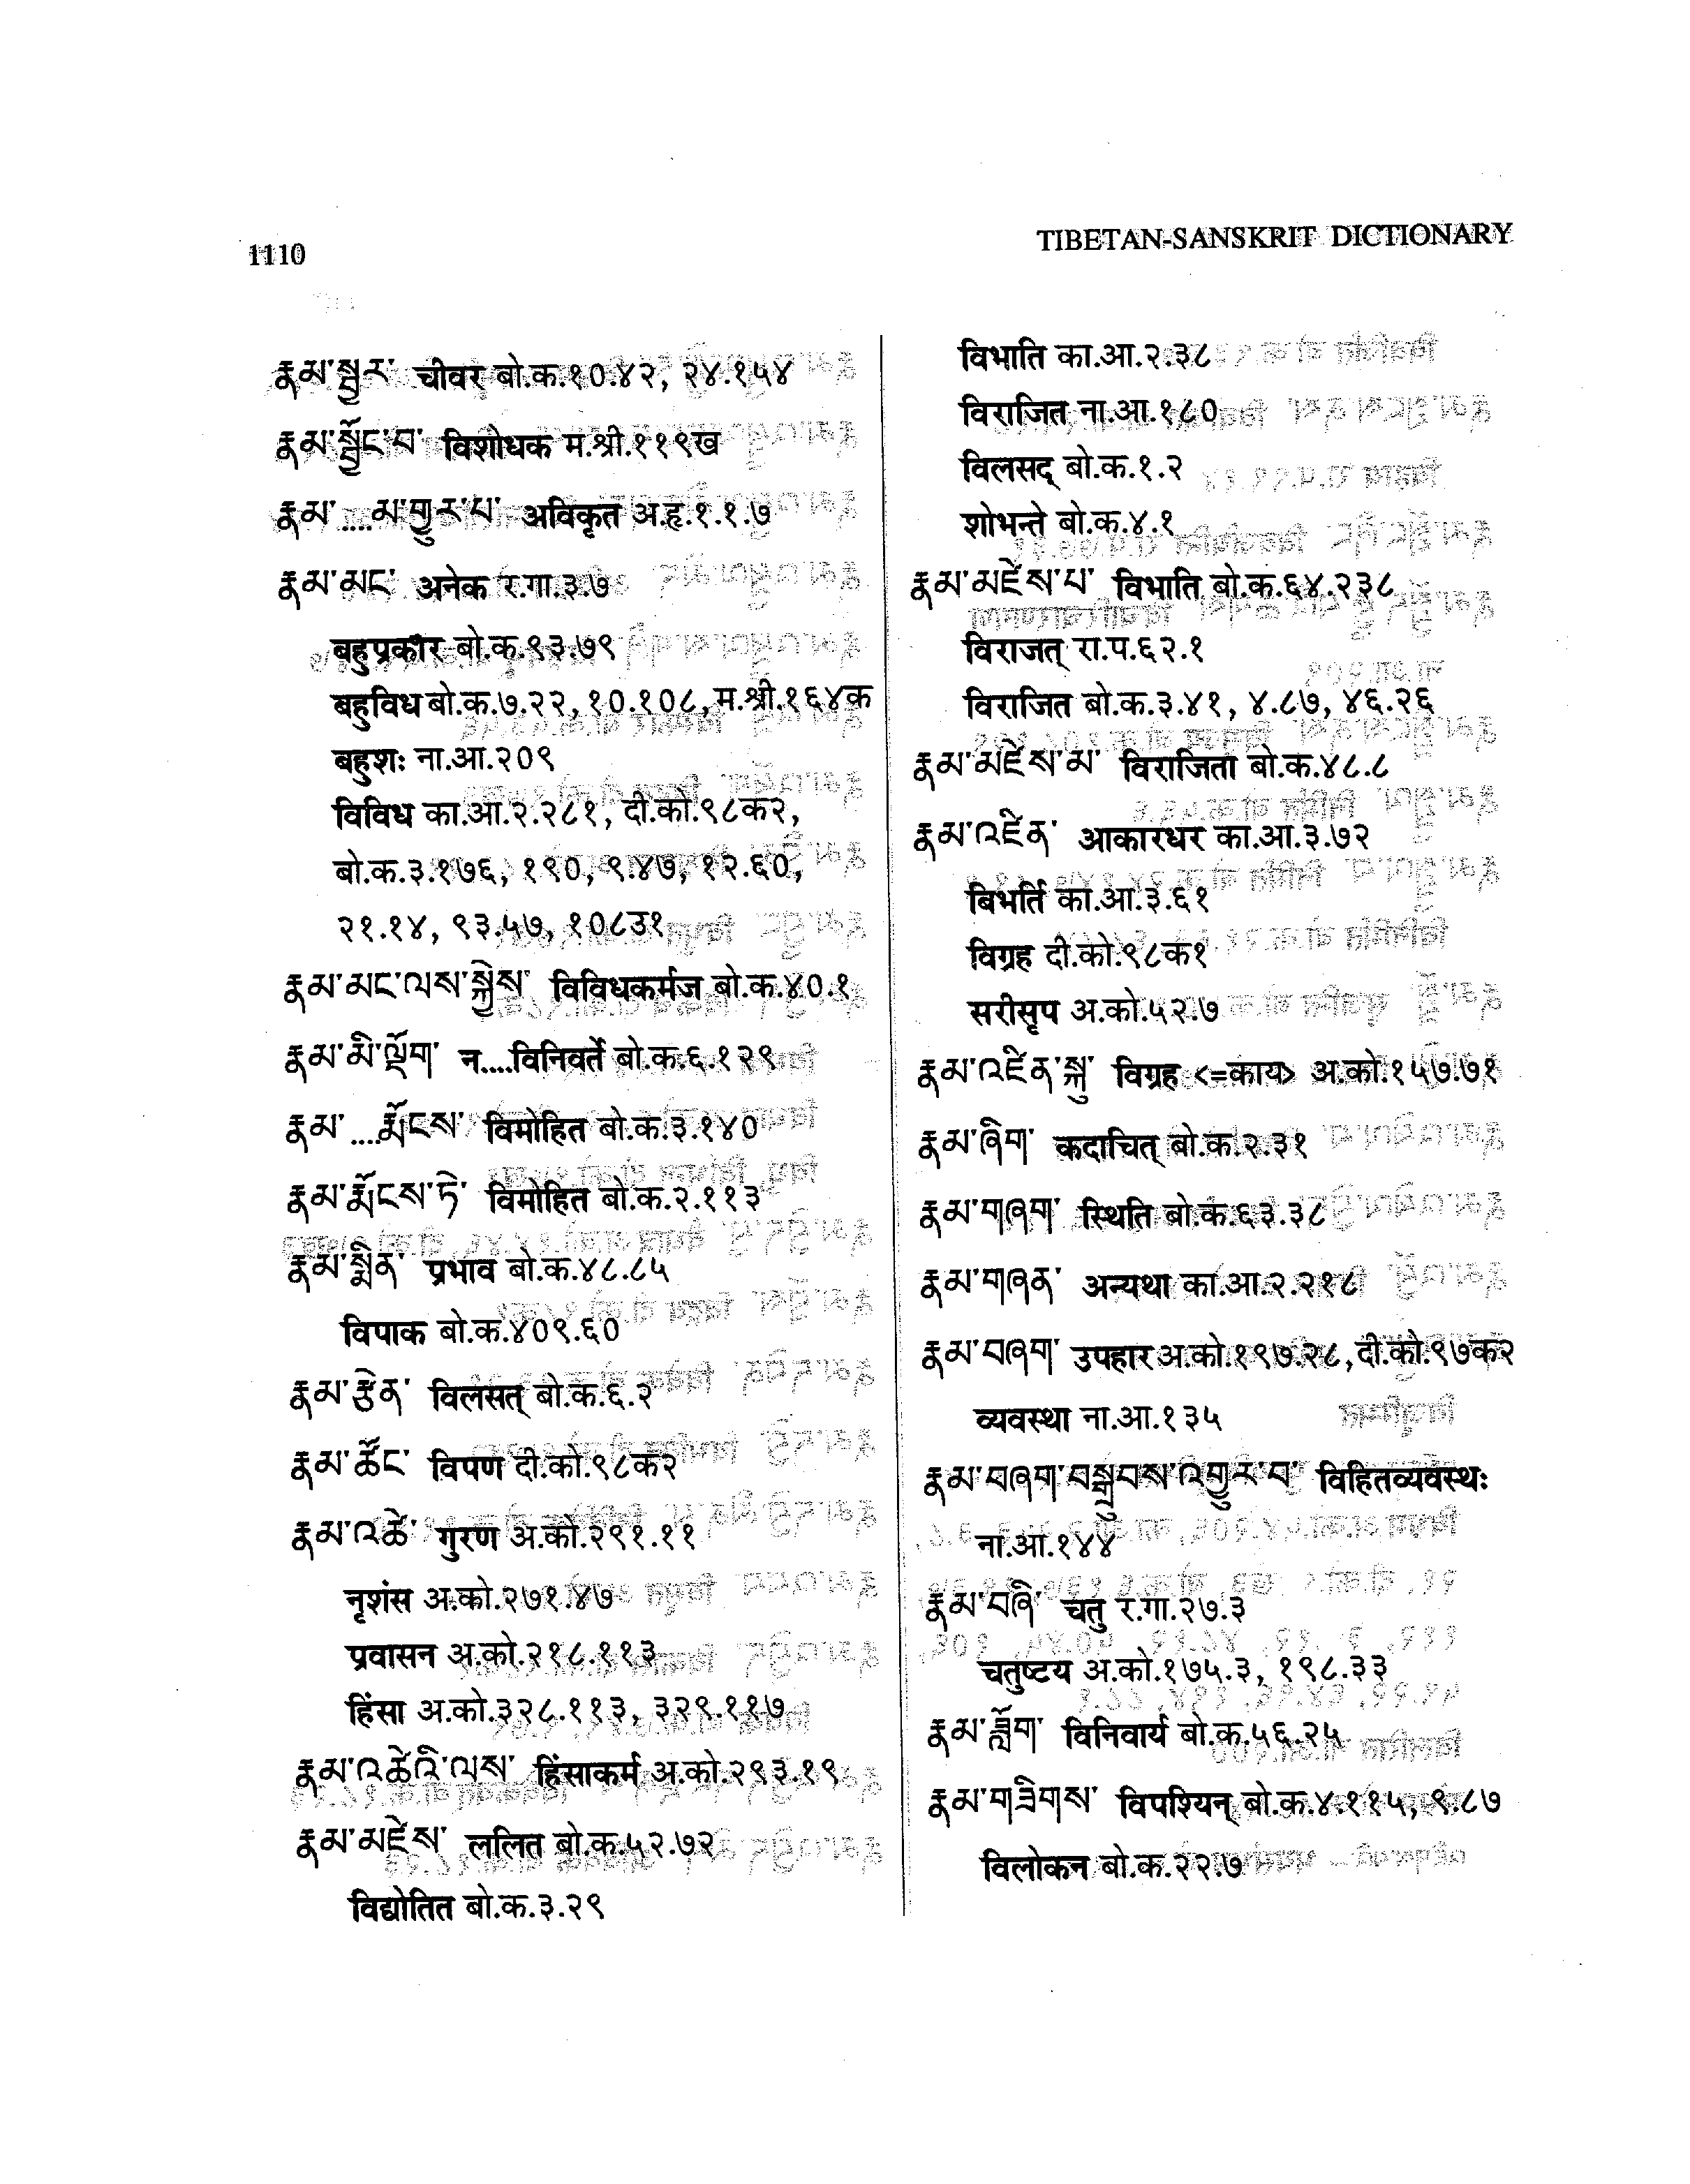 1110
TIBETAN-SANSKRIT DICTIONARY
རྣམ་སྦྱར་ चीवर बो.क.१०.४२, २४.१५४
རྣམ་སྦྱོང་བ་ विशोधक म.श्री.११९ख
རྣམ་....མ་གྱུར་པ་ अविकृत अ.हृ.१.१.७
རྣམ་མང་ अनेक र.गा.३.७
बहुप्रकार बो.क.९३.७९
बहुविध बो.क.७.२२, १०.१०८, म.श्री.१६४क
बहुशः ना.आ.२०९
विविध का.आ.२.२८१, दी.को.९८क२,
बो.क.३.१७६, १९०, ९.४७, १२.६०,
२१.१४, ९३.५७, १०८उ१
རྣམ་མང་ལས་སྐྱེས་ विविधकर्मज बो.क.४०.१
རྣམ་མི་ལྡོག་ न....विनिवर्ते बो.क.६.१२९
རྣམ་....རྨོངས་ विमोहित बो.क.३.१४०
རྣམ་རྨོངས་ཏེ་ विमोहित बो.क.२.११३
རྣམ་སྨིན་ प्रभाव बो.क.४८.८५
विपाक बो.क.४०९.६०
རྣམ་རྩེན་ विलसत् बो.क.६.२
རྣམ་ཚོང་ विपण दी.को.९८क२
རྣམ་འཚེ་ गुरण अ.को.२९१.११
नृशंस अ.को.२७१.४७
प्रवासन अ.को.२१८.११३
हिंसा अ.को.३२८.११३, ३२९.११७
རྣམ་འཚེའི་ལས་ हिंसाकर्म अ.को.२९३.१९
རྣམ་མཛེས་ ललित बो.क.५२.७२
विद्योतित बो.क.३.२९
विभाति का.आ.२.३८
विराजित ना.आ.१८०
विलसद् बो.क.१.२
शोभन्ते बो.क.४.१
རྣམ་མཛེས་པ་ विभाति बो.क.६४.२३८
विराजत् रा.प.६२.१
विराजित बो.क.३.४१, ४.८७, ४६.२६
རྣམ་མཛེས་མ་ विराजिता बो.क.४८.८
རྣམ་འཛིན་ आकारधर का.आ.३.७२
बिभर्ति का.आ.३.६१
विग्रह दी.को.९८क१
सरीसृप अ.को.५२.७
རྣམ་འཛིན་སྐུ་ विग्रह <=काय> अ.को.१५७.७१
རྣམ་ཞིག་ कदाचित् बो.क.२.३१
རྣམ་གཞག་ स्थिति बो.क.६३.३८
རྣམ་གཞན་ अन्यथा का.आ.२.२१८
རྣམ་བཞག་ उपहार अ.को.१९७.२८, दी.को.९७क२
व्यवस्था ना.आ.१३५
རྣམ་བཞག་བསྒྲུབས་འགྱུར་བ་ विहितव्यवस्थः
ना.आ.१४४
རྣམ་བཞི་ चतु र.गा.२७.३
चतुष्टय अ.को.१७५.३, १९८.३३
རྣམ་ཟློག་ विनिवार्य बो.क.५६.२५
རྣམ་གཟིགས་ विपश्यिन् बो.क.४.११५, ९.८७
विलोकन बो.क.२२.७